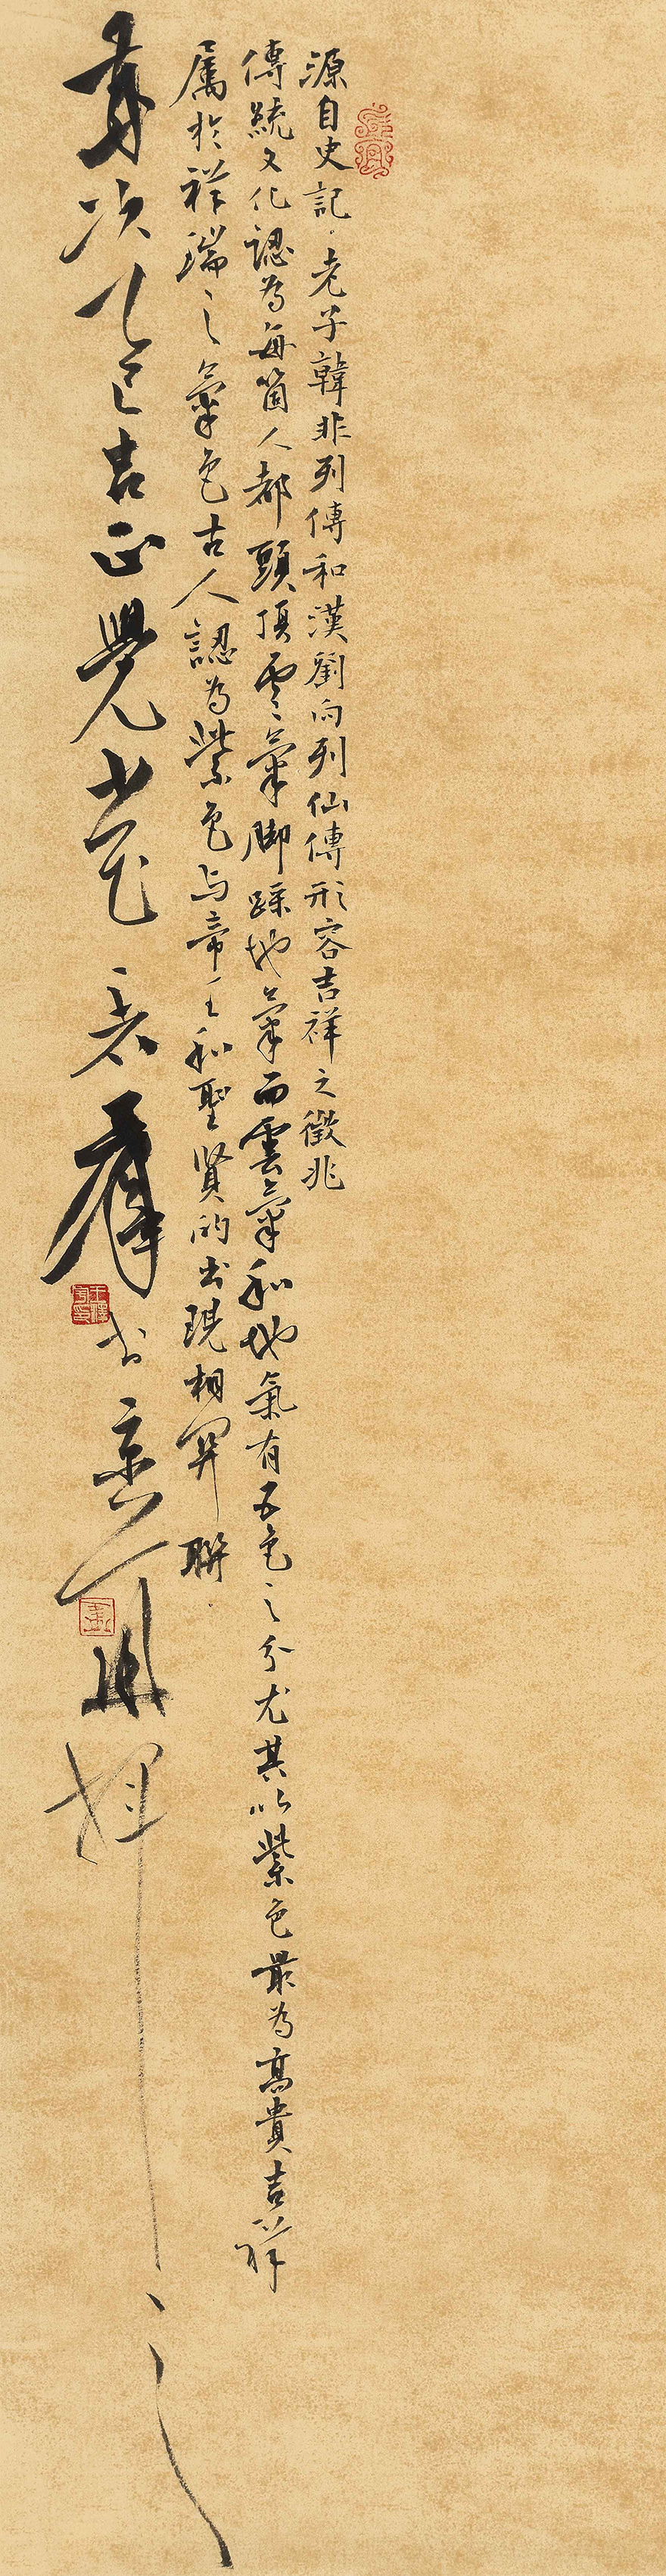 源自史記·老子韓非列傳和漢劉向列仙傳形容吉祥之徵兆
傳統文化認為每箇人都頭頂雲氣腳踩地氣而雲氣和地氣有五色之分尤其以紫色最為高貴吉祥
属於祥瑞之氣色古人認為紫色与帝王和聖賢的出現相関聯
歲次乙巳吉正覺
書京